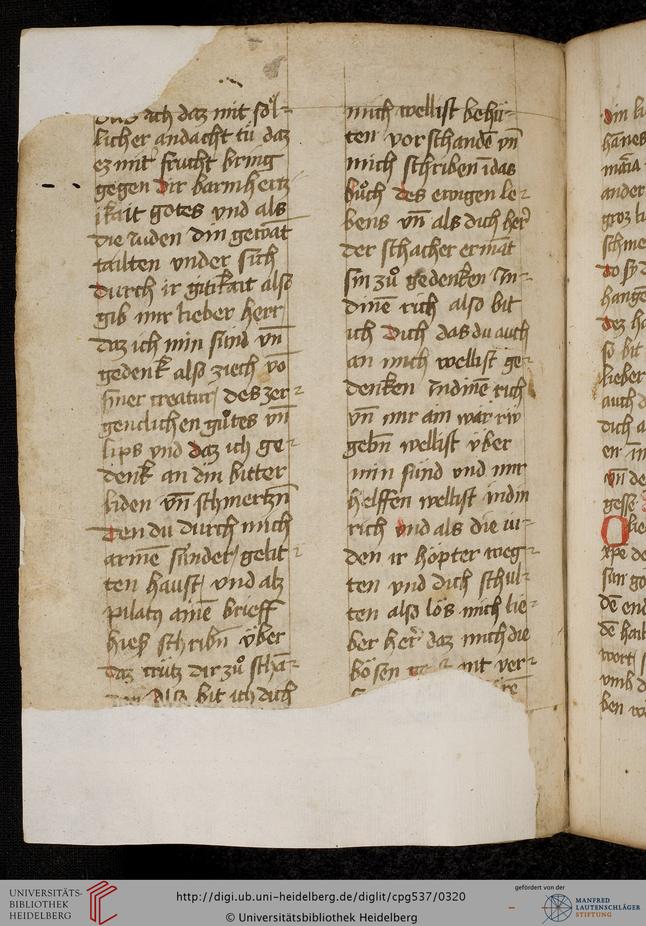 ach daz mit söl-
licher andacht tü daz
ez mit frucht bring
gegen dir barmhertz
ikait gotes vnd als
die Juden din gewat
tailten vnder sich
durch ir gitikait also
gib mir lieber herr
daz ich min sünd vn̄
gedenk also ziech vō
siner creatur des zer-
genclichen gůtes vn̄
lips vnd daz ich ge-
denk an din bitter
liden vn̄ schmertzn̄
den du durch mich
armē sünder gelit-
ten haust vnd alz
pilatꝯ ainē brieff
hieß schribn̄ über
daz crütz dir zů schan-
bit ich dich
mich wellist behü-
ten vor schandē vn̄
mich schriben ī das
bůch des ewigen le-
bens vn̄ als dich her̄
der schacher ermāt
sin zů gedenken In-
dinē rich also bit
ich dich das du auch
an mich wellist ge-
denken Indinē rich
vn̄ mir ain war riw
gebn̄ wellist über
min sünd vnd mir
helffen wellist in din
rich vnd als die iu-
den ir höpter weg-
ten vnd dich schul-
ten also lös mich lie-
ber her̄ daz mich die
bösen nit ver-
din
hānes
maria
ander
groz
schme
do
hang
dez
so bit
lieber
auch d
dich a
er in
vn̄ de
gesse
O lie
xp̄e de
sun go
dē end
dē hail
wort
vmb d
ben
UNIVERSITÄTS-
BIBLIOTHEK
HEIDELBERG
http://digi.ub.uni-heidelberg.de/diglit/cpg537/0320
© Universitätsbibliothek Heidelberg
gefördert von der
MANFRED
LAUTENSCHLÄGER
STIFTUNG